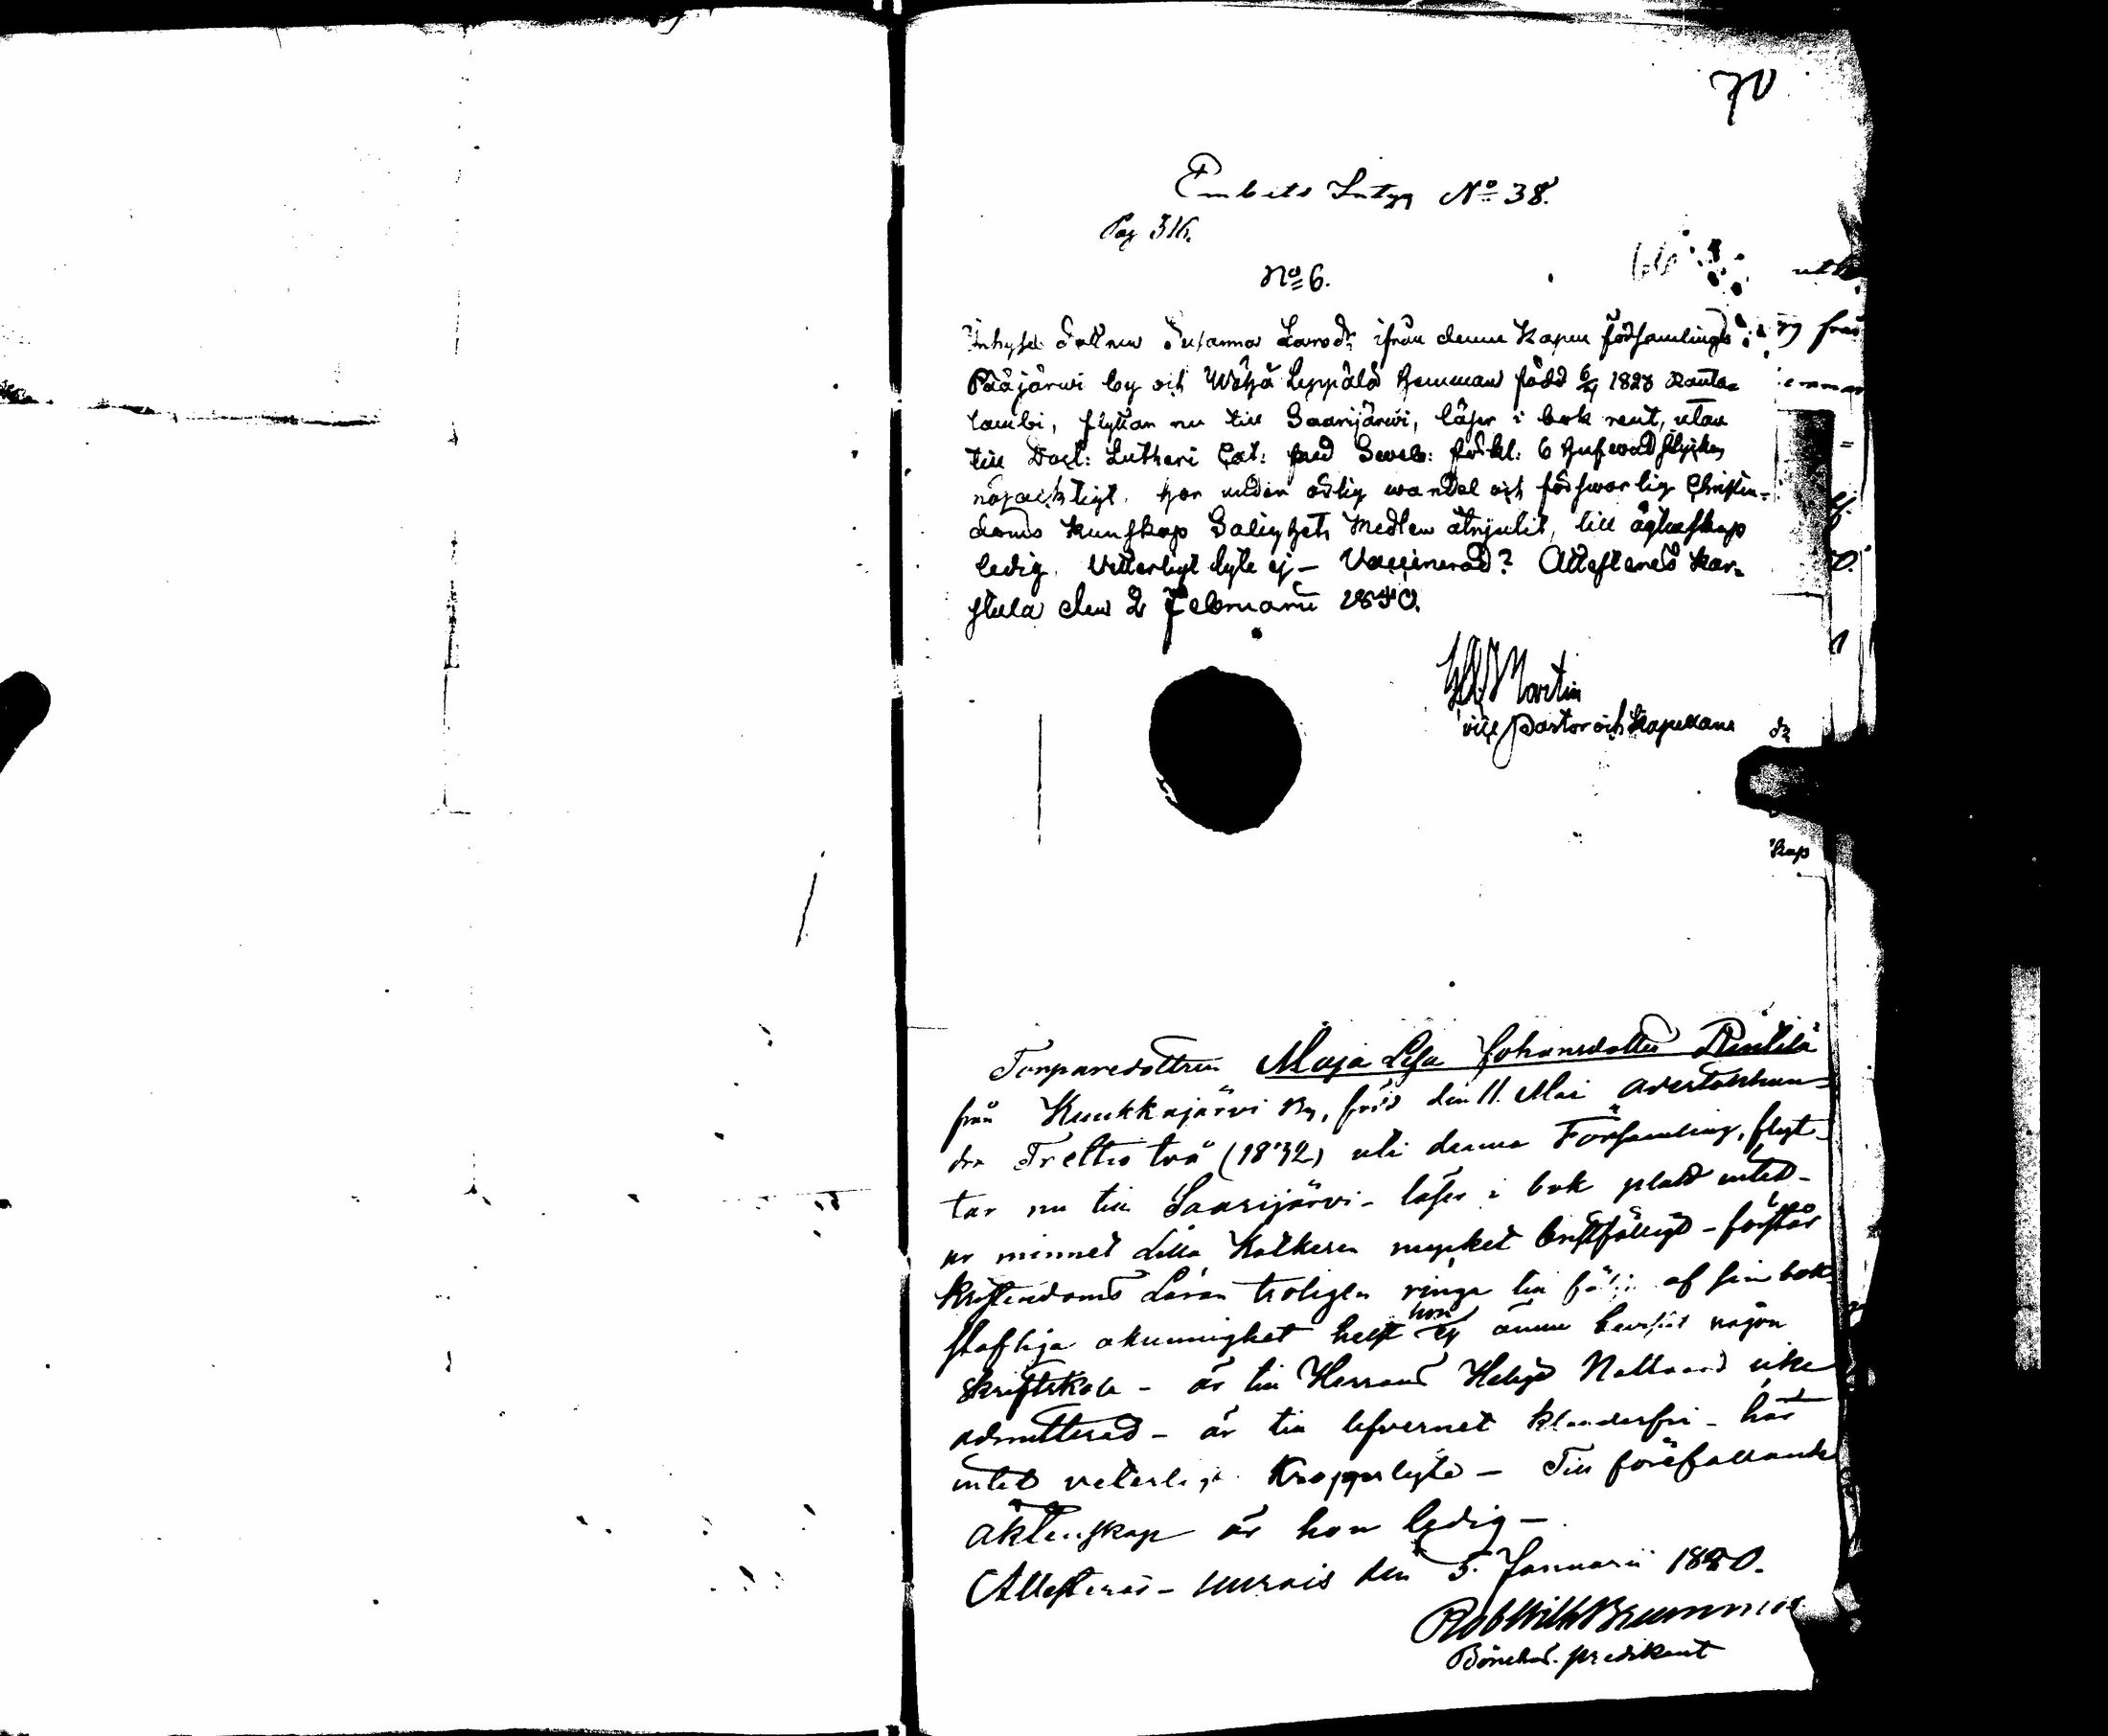 70
Embets Intyg No 38.
Pag 316.
No 6.
Inhyses Enkan Susanna Larsdr ifrån denne Kapell församlings
Pääjärwi by och Wähä Leppälä Hemman född 1828 Rauta-
lambi, flyttar nu till Saarijärwi, läser i bok rent, utan
till Doct: Lutheri Cat: med Sweb: förkl: 6 hufwudstycken
nöjachtigt, har under ärlig wandel och försvarlig Christen-
doms kunskap Salighets Medlen åtnjutit, till ägtenskap
ledig. Vitterligt lyte ej – Vaccinerad? Attesteras Kar-
stula den 2 Februarii 1850.
Martin
vice Pastor och Kapellan
Torparedottren Maja Lisa Johansdotter Penttilä
från Kuukkajärvi by, född den 11. Mai Adertonhun-
dra Trettio två (1832) uti denna Församling, flyt-
tar nu till Saarijärvi – läser i bok platt intet –
ur minnet Lilla Katkesen mycket bristfälligt – förstår
kristendoms Läran troligen ringa till följe af sin bok-
stafliga okunnighet helst hon ej ännu bevistat någon
Skriftskola – är till Herrans Heliga Nattvard icke
admitterad – är till lefvernet klanderfri – har
intet veterligt Kroppslyte – Till förefallande
äktenskap är hon ledig –
Attesteras – Uurais den 5. Januarii 1850.
Rob Wilh Brummer
Bönehus predikant